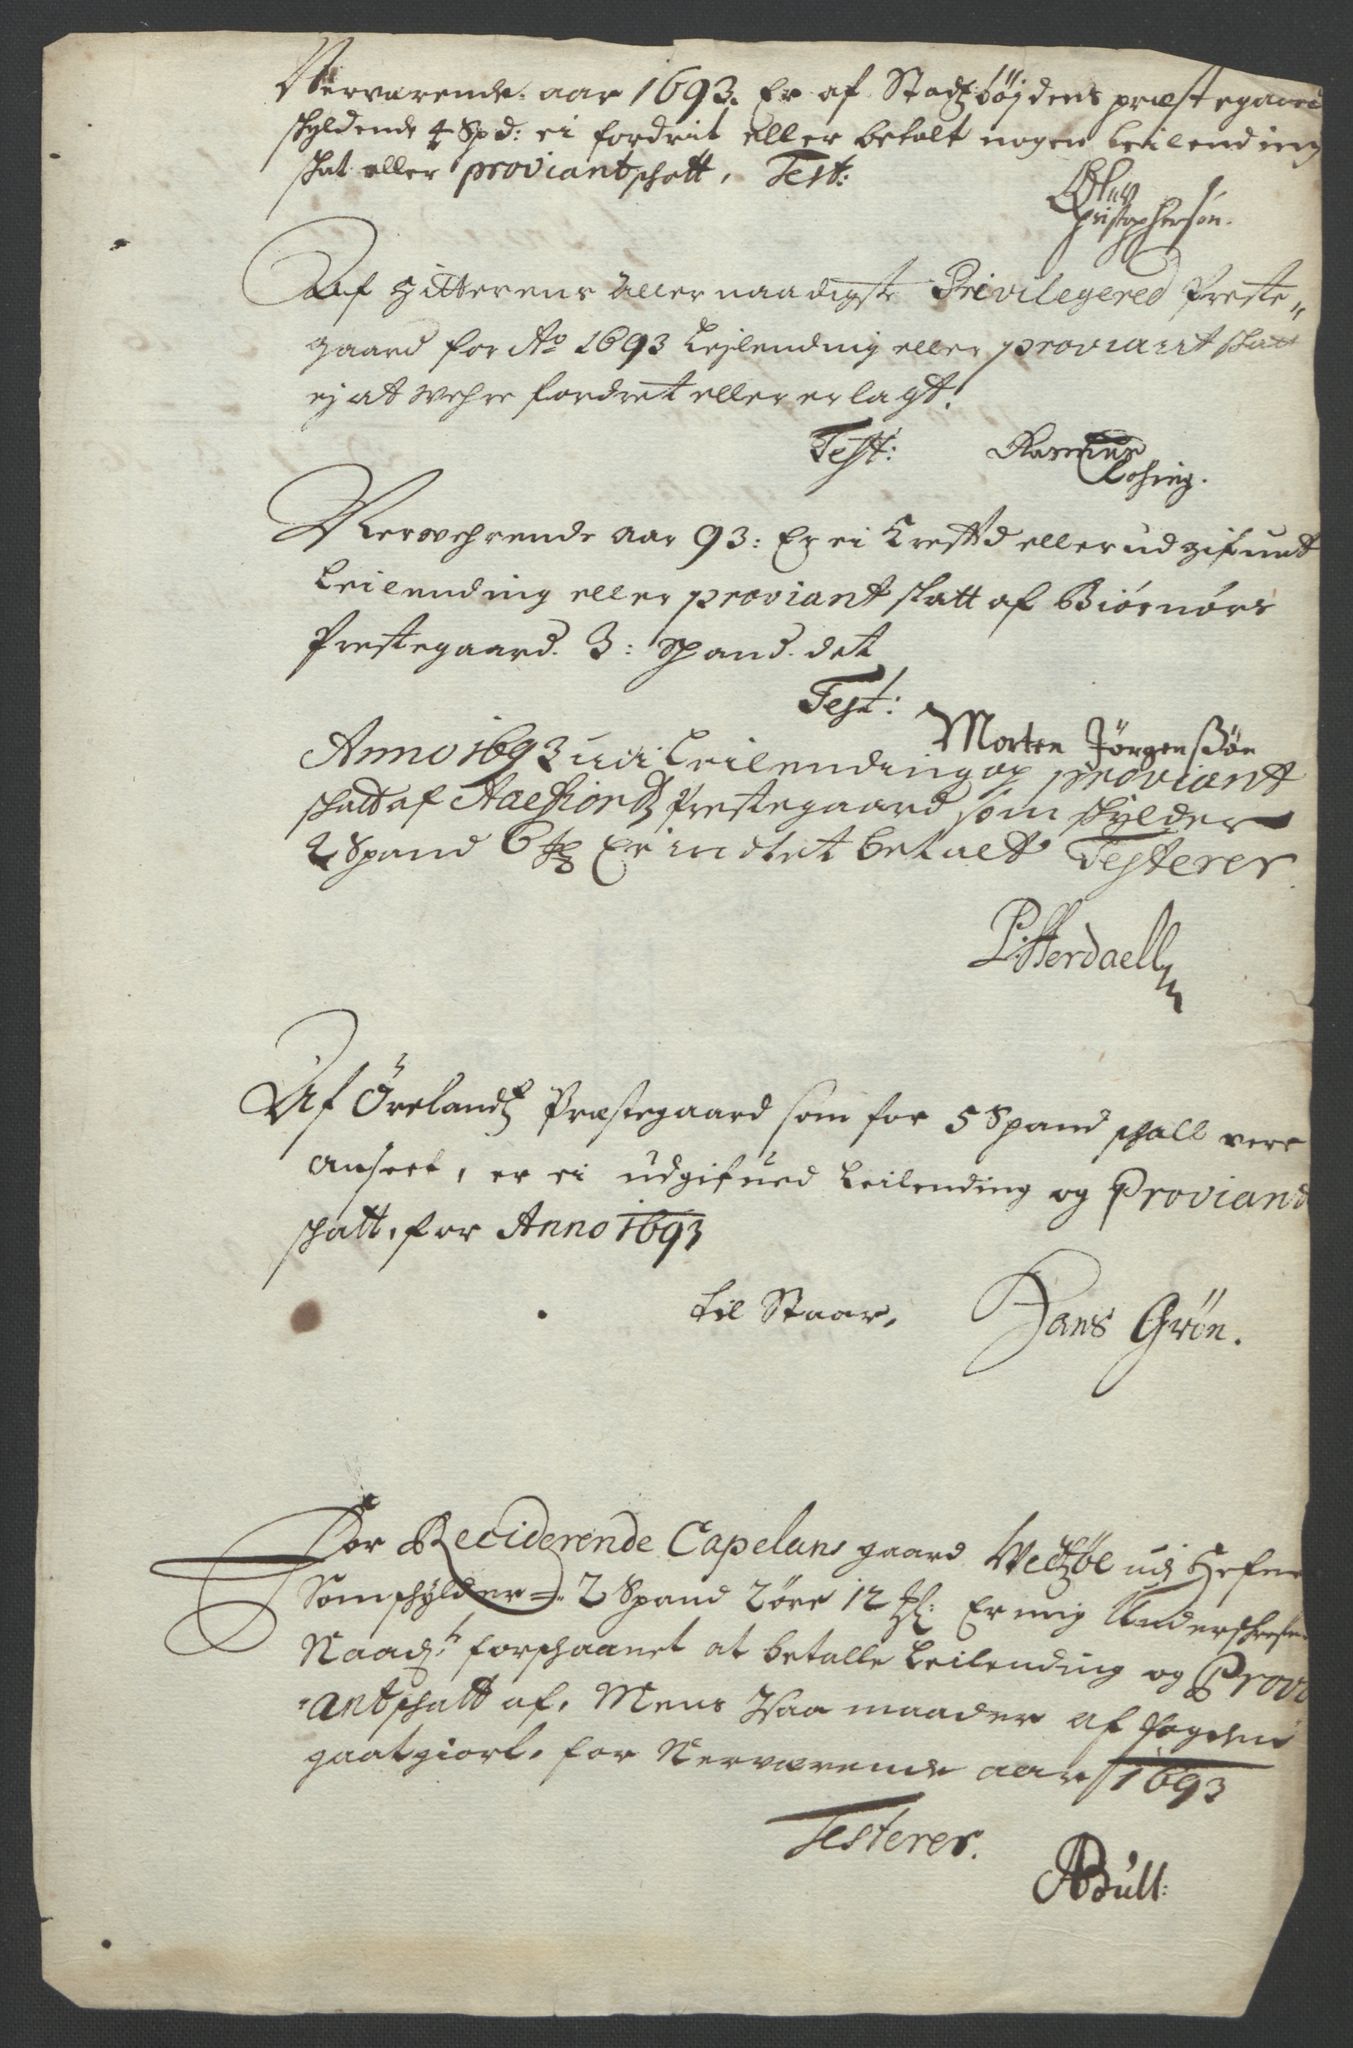 Nerværende aar 1693. Er af Stadzböjdens præstegaard
skyldende 4 Spd: ei fordrit eller betalt nogen leilending
skat eller proviantskatt, Test:
Oluf
Christophersön.
Af Hitterens allernaadigste Privilegered Preste-
gaard for Ao 1693 Lejlending eller proviant skatt
ej at wehre fordret eller erlagt.
Test: Rasmus
Rosing.
Nerwehrende aar 93: Er ei Kreffd eller udgifuet
Leilending eller proviant skatt af Biörnörs
Prestegaard. 3: Spand. det
Test:
Morten Jörgensßön
Anno 1693 Leilending og proviant
skatt af Aaefiordz Prestegaard som skylder
2 Spand 6 Er indtet betalt Testerer
P. Herdaell
Af Örelandz Præstegaard som for 5 Spand skall vere
anseet, er ei udgifued Leilending og Proviand
skatt, for Anno 1693
til Staar, Hans Grön.
For Reciderende Capelans gaard Wedzöe udj Hefne
Som skylder 2 Spand 2 öre 12 Er mig Underskrefne
Naadt. forskaanet at betalle Leilending og Provi
antskatt af, Mens Saa maader af fogden
gaatgiort, for Nerværende aar 1693
Testerer.
ABull: